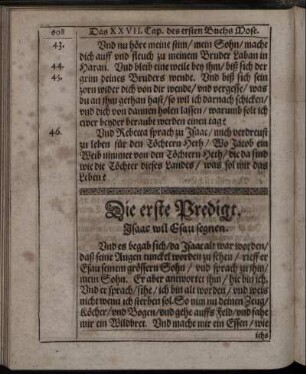 608 Das XXVII. Cap. des ersten Buchs Mose.
43. Und nu höre meine stim/ mein Sohn/ mache
dich auff und fleuch zu meinem Bruder Laban in
44. Haran. Und bleib eine weile bey ihm/ biß sich der
45. grim deines Bruders wende. Und biß sich sein
zorn wider dich von dir wende/ und vergesse/ was
du an ihm gethan hast/ so wil ich darnach schicken/
und dich von dannen holen lassen/ warumb solt ich
ewer beyder beraubt werden einen tag?
46. Und Rebecca sprach zu Isaac/ mich verdreust
zu leben für den Töchtern Heth/ Wo Jacob ein
Weib nimmet von den Töchtern Heth/ die da sind
wie die Töchter dieses Landes/ was sol mir das
Leben?
Die erste Predigt.
Isaac wil Esau segnen.
Und es begab sich/ da Isaac alt war worden/
daß seine Augen tunckel worden zu sehen/ rieff er
Esau seinem grössern Sohn/ und sprach zu ihm/
mein Sohn. Er aber antwortet ihm/ hie bin ich.
Und er sprach/ sihe/ ich bin alt worden/ und weis
nicht wenn ich sterben sol. So nim nu deinen Zeug/
Köcher/ und Bogen/ und gehe auffs Feld/ und fahe
mir ein Wildbret. Und mache mir ein Essen/ wie
ichs